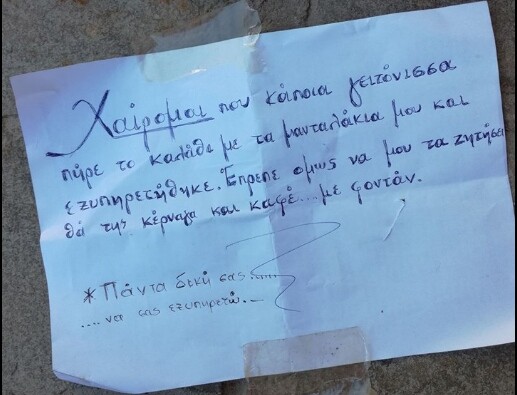 Χαίρομαι που κάποια γειτόνισσα
πήρε το καλάθι με τα μανταλάκια μου και
εξυπηρετήθηκε. Έπρεπε όμως να μου τα ζητήσει
θα της κέρναγα και καφέ... με φοντάν.
* Πάντα δική σας......
.... να σας εξυπηρετώ....